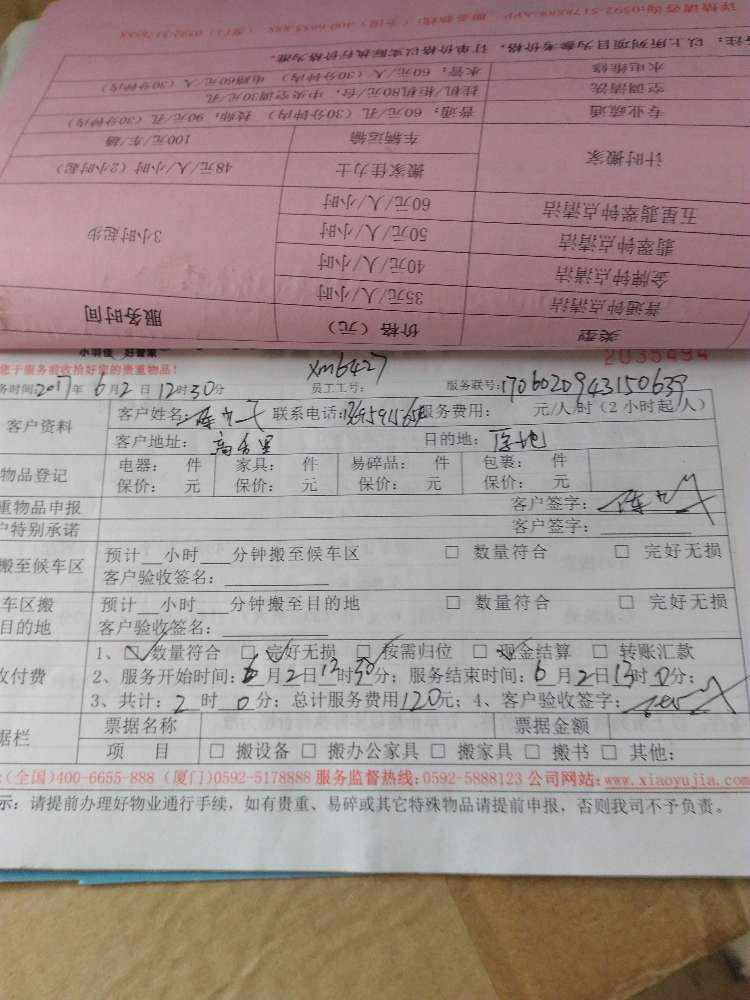 详情请咨询:0592-5178888.APP 服务热线:(全国)400-6655-888 (厦门)0592-5178888
备注：以上所列项目为参考价格，订单价格以实际执行价格为准。
水电维修 水管：60元/人（30分钟内） 电路60元/人（30分钟内）
空调清洗 挂机/柜机80元/台，中央空调30元/孔
专业疏通 普通：60元/孔（30分钟内） 技师：90元/孔（30分钟内）
计时搬家 车辆运输 100元/车/趟
搬家佳力士 48元/人/小时（2小时起）
五星翡翠钟点清洁 60元/人/小时 3小时起步
翡翠钟点清洁 50元/人/小时
金牌钟点清洁 40元/人/小时
普通钟点清洁 35元/人/小时
类型 价格（元） 服务时间
小羽佳 好管家
您于服务前收拾好您的贵重物品! 2035494
务时间:2017年6月2日12时30分 员工工号: xm6427 服务联号:1706020943150639
客户资料 客户姓名: 联系电话: 服务费用: 元/人/时（2小时起/人）
客户地址: 高香里 目的地: 原地
物品登记 电器: 件 家具: 件 易碎品: 件 包裹: 件
保价: 元 保价: 元 保价: 元 保价: 元
重物品申报 客户签字:
户特别承诺 客户签字:
搬至候车区 预计__小时___分钟搬至候车区 □ 数量符合 □ 完好无损
客户验收签名:
车区搬目的地 预计__小时___分钟搬至目的地 □ 数量符合 □ 完好无损
客户验收签名:
收付费 1、□数量符合 □完好无损 □按需归位 □现金结算 □ 转账汇款
2、服务开始时间:6月2日13时30分；服务结束时间:6月2日13时0分；
3、共计:2时0分；总计服务费用120元；4、客户验收签字:
据栏 票据名称 票据金额
项 目 □ 搬设备 □ 搬办公家具 □ 搬家具 □ 搬书 □ 其他:
(全国)400-6655-888 (厦门)0592-5178888 服务监督热线:0592-5888123 公司网站:www.xiaoyujia.com
示：请提前办理好物业通行手续，如有贵重、易碎或其它特殊物品请提前申报，否则我司不予负责。